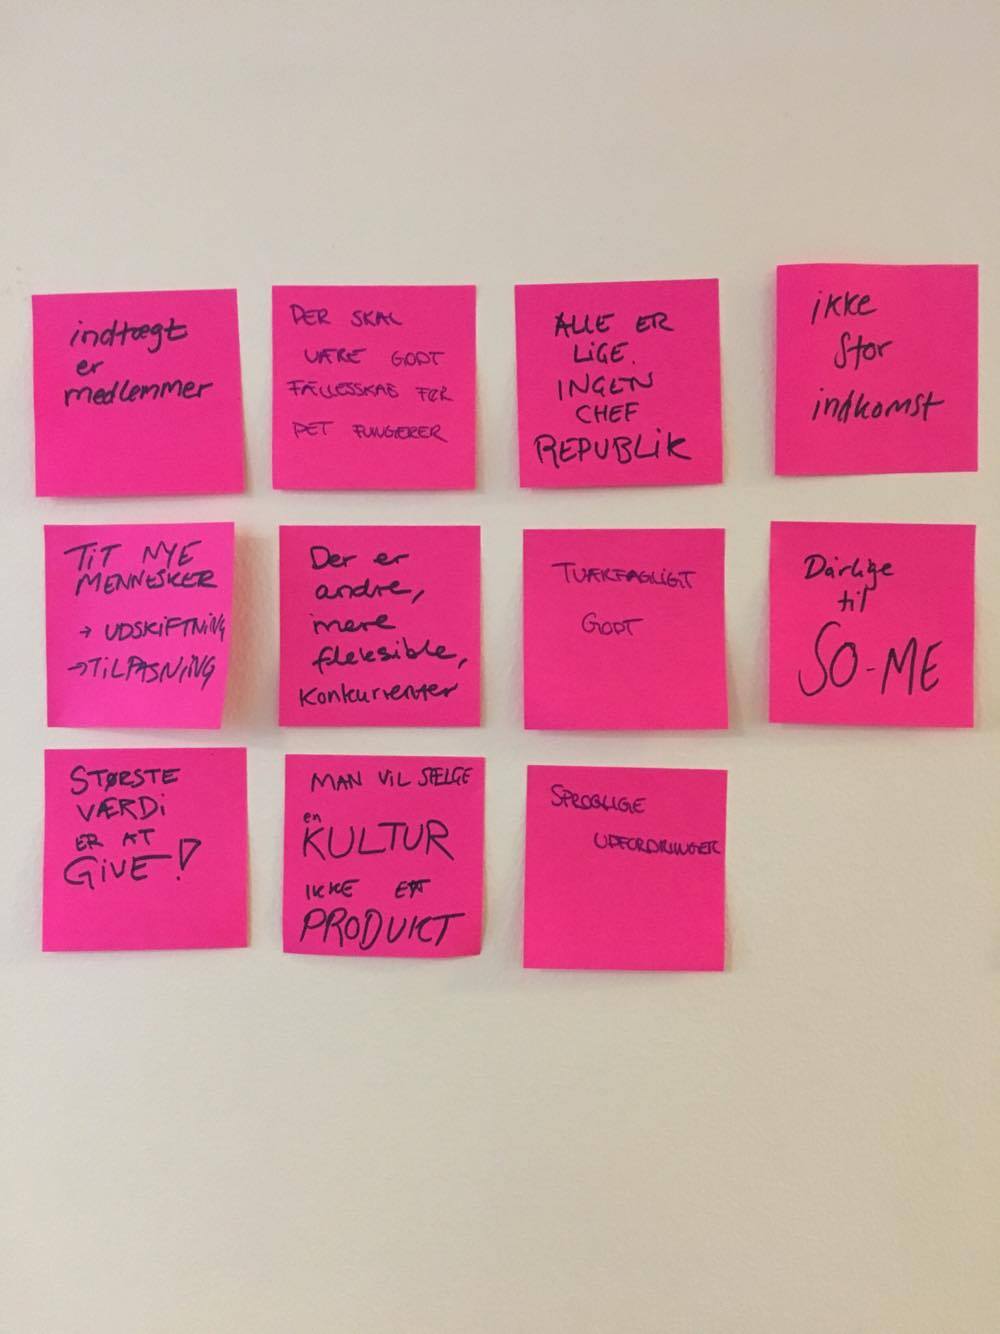 indtægt
er
medlemmer
DER SKAL
VÆRE GODT
FÆLLESSKAB FØR
DET FUNGERER
ALLE ER
LIGE.
INGEN
CHEF
REPUBLIK
ikke
stor
indkomst
TIT NYE
MENNESKER
→ UDSKIFTNING
→ TILPASNING
Der er
andre,
mere
fleksible,
konkurrenter
TVÆRFAGLIGT
GODT
Dårlige
til
SO-ME
STØRSTE
VÆRDI
ER AT
GIVE!
MAN VIL SÆLGE
en
KULTUR
IKKE ET
PRODUKT
SPROGLIGE
UDFORDRINGER